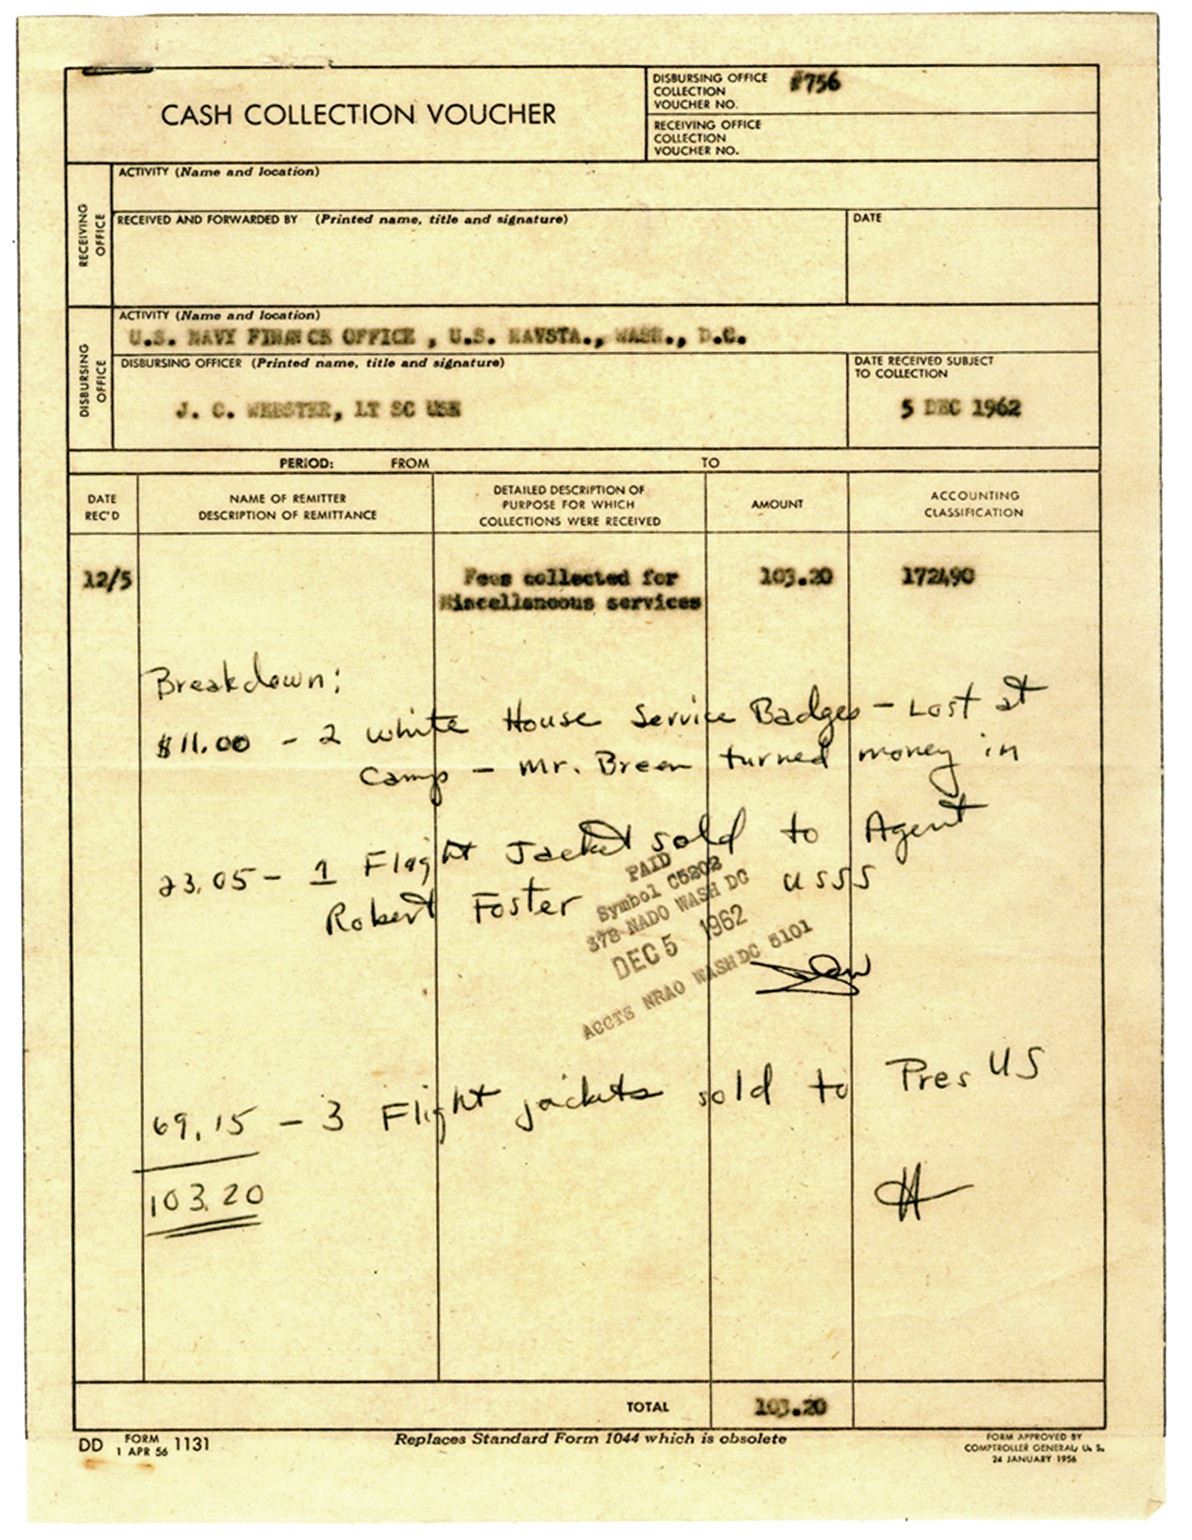 CASH COLLECTION VOUCHER
DISBURSING OFFICE
COLLECTION
VOUCHER NO.
#756
RECEIVING OFFICE
COLLECTION
VOUCHER NO.
RECEIVING
OFFICE
ACTIVITY (Name and location)
RECEIVED AND FORWARDED BY (Printed name, title and signature)
DATE
DISBURSING
OFFICE
ACTIVITY (Name and location)
U.S. NAVY FINANCE OFFICE , U.S. NAVSTA., WASH., D.C.
DISBURSING OFFICER (Printed name, title and signature)
J. C. WEBSTER, LT SC USN
DATE RECEIVED SUBJECT
TO COLLECTION
5 DEC 1962
PERIOD: FROM TO
DATE
REC'D
NAME OF REMITTER
DESCRIPTION OF REMITTANCE
DETAILED DESCRIPTION OF
PURPOSE FOR WHICH
COLLECTIONS WERE RECEIVED
AMOUNT
ACCOUNTING
CLASSIFICATION
12/5 Fees collected for 103.20 172490
Miscellaneous services
Breakdown:
$11.00 - 2 White House Service Badges - Lost at
Camp - Mr. Breen turned money in
23.05 - 1 Flight Jacket sold to Agent
Robert Foster USSS
PAID
Symbol C5202
378 NADO WASH DC
DEC 5 1962
ACCTS NRAO WASH DC 5101
69.15 - 3 Flight jackets sold to Pres US
103.20
TOTAL 103.20
DD FORM 1131
1 APR 56
Replaces Standard Form 1044 which is obsolete
FORM APPROVED BY
COMPTROLLER GENERAL, U. S.
24 JANUARY 1956